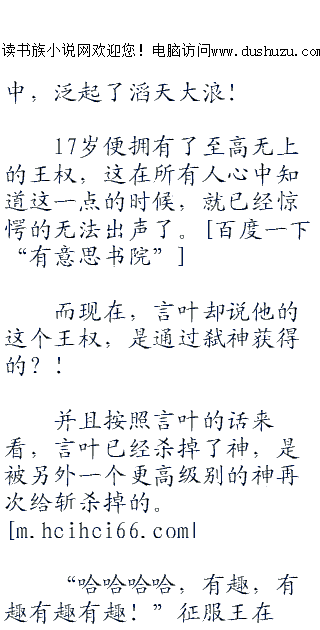 读书族小说网欢迎您！电脑访问www.dushuzu.com
中，泛起了滔天大浪！
17岁便拥有了至高无上
的王权，这在所有人心中知
道这一点的时候，就已经惊
愕的无法出声了。[百度一下
“有意思书院”]
而现在，言叶却说他的
这个王权，是通过弑神获得
的？！
并且按照言叶的话来
看，言叶已经杀掉了神，是
被另外一个更高级别的神再
次给斩杀掉的。
[m.hcihci66.com|
“哈哈哈哈，有趣，有
趣有趣有趣！”征服王在